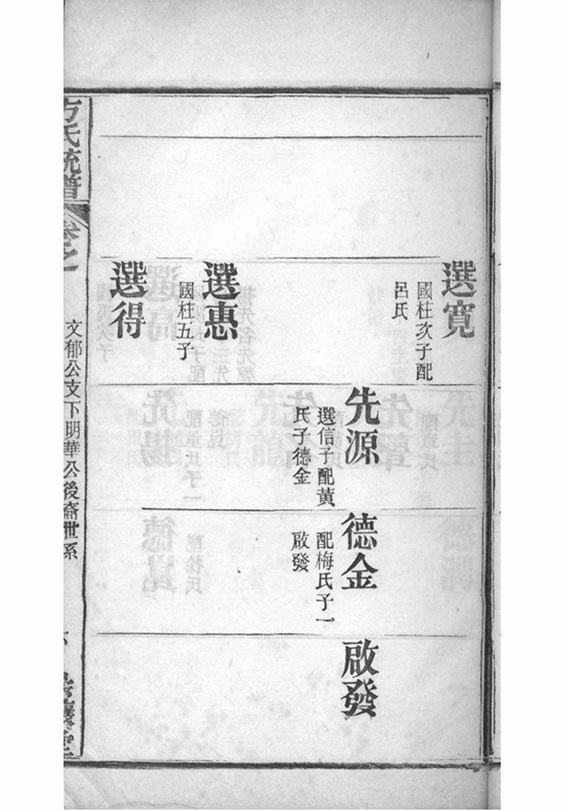 選寬
國柱次子配
呂氏
先源
選信子配黃
氏子德金
德金
配梅氏子一
啟發
啟發
選惠
國柱五子
選得
方氏統譜
卷之
文郁公支下明華公後裔世系